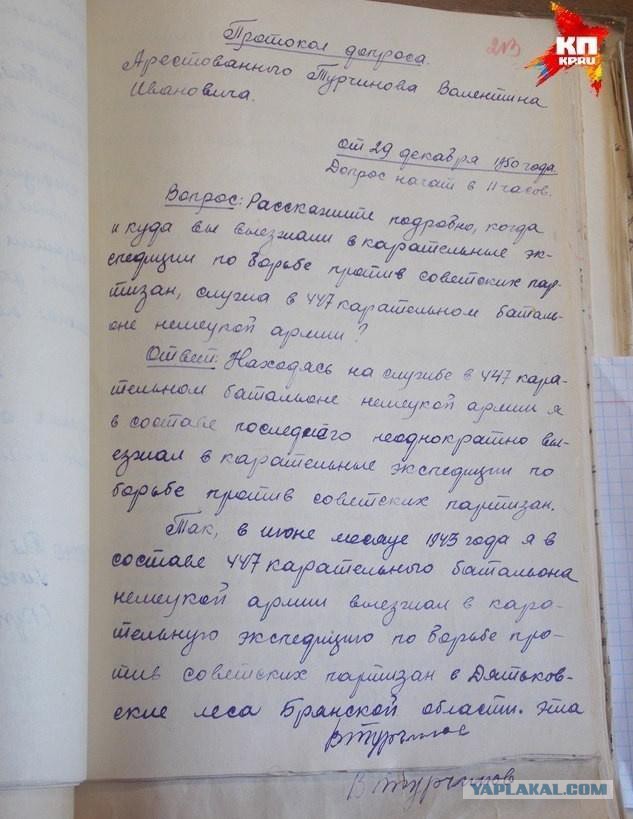 213
КП
KP.RU
Протокол допроса.
Арестованного Турчинова Валентина
Ивановича.
от 29 декабря 1950 года
Допрос начат в 11 часов.
Вопрос: Расскажите подробно, когда
и куда вы выезжали в карательные эк-
спедиции по борьбе против советских пар-
тизан, служа в 447 карательном баталь-
оне немецкой армии?
Ответ: Находясь на службе в 447 кара-
тельном батальоне немецкой армии я
в составе последнего неоднократно вы-
езжал в карательные экспедиции по
борьбе против советских партизан.
Так, в июне месяце 1943 года я в
составе 447 карательного батальона
немецкой армии выезжал в кара-
тельную экспедицию по борьбе про-
тив советских партизан в Дятьков-
ские леса Брянской области. Эта
ВТурчинов
ВТурчинов
YAPLAKAL.COM